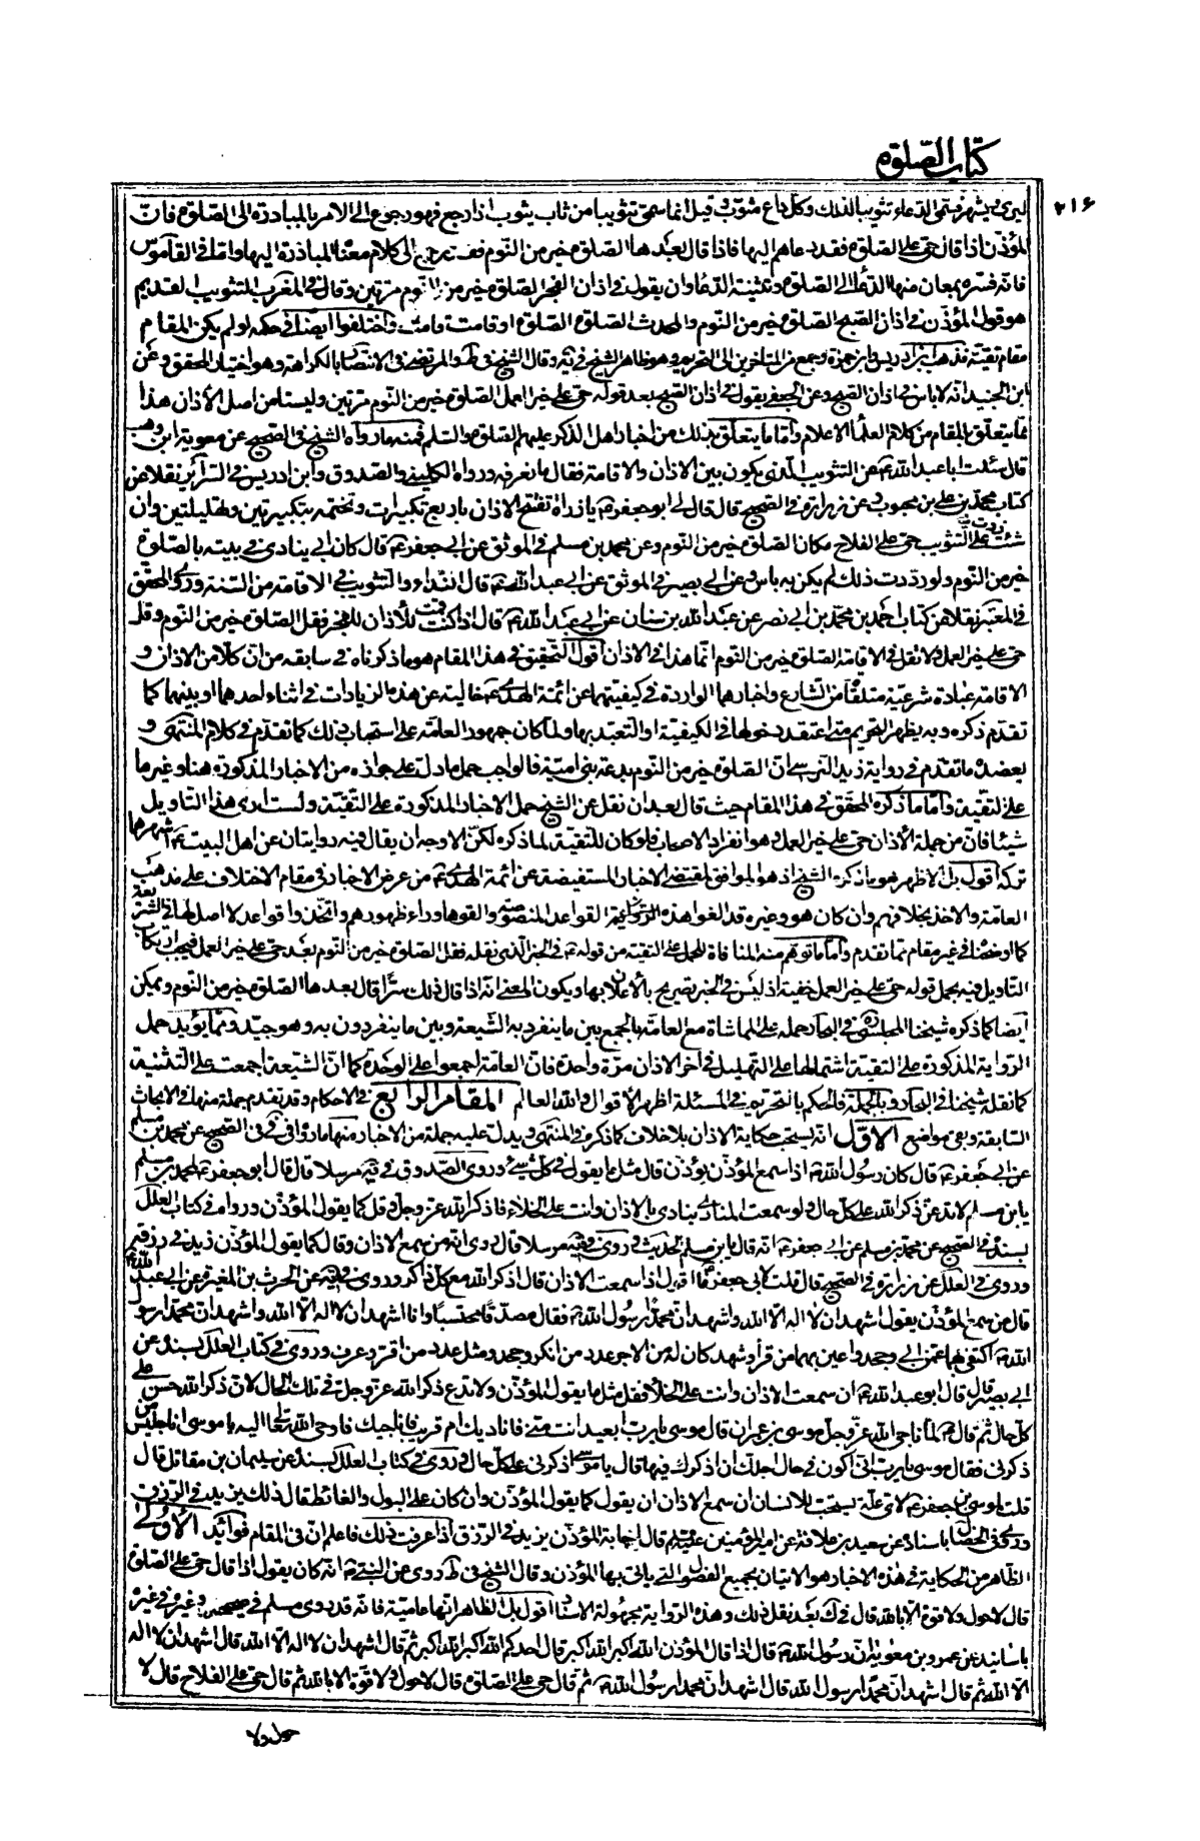 كتاب الصلوة
٢١٦
ليرى ويشهر فسمى الدعاء تثويبا لذلك وكل داع مثوب وقيل انما سمى تثويبا من ثاب يثوب اذا رجع فهو رجوع الى الامر بالمبادرة الى الصلوة فان
المؤذن اذا قال حى على الصلوة فقد دعاهم اليها فاذا قال بعدها الصلوة خير من النوم فقد رجع الى كلام معناه المبادرة اليها واما فى القاموس
فانه فسره بمعان منها الدعاء الى الصلوة وتثنية الدعاء وان يقول فى اذان الفجر الصلوة خير من النوم مرتين وقال فى المغرب التثويب القديم
هو قول المؤذن فى اذان الصبح الصلوة خير من النوم والمحدث الصلوة الصلوة او قامت قامت واختلفوا ايضا فى حكمه لو لم يكن المقام
مقام تقية فذهب ابن ادريس وابن حمزة وجمع من المتاخرين الى التحريم وهو ظاهر الشيخ فى ية وقال الشيخ فى ط والمرتضى فى الانتصار بالكراهة وهو اختيار المحقق وعن
ابن الجنيد انه لا باس فى اذان الصبح وعن الجعفى يقول فى اذان الصبح بعد قوله حى على خير العمل الصلوة خير من النوم مرتين وليستا من اصل الأذان هذا
مما يتعلق بالمقام من كلام العلماء الاعلام وأما ما يتعلق بذلك من اخبار اهل الذكر عليهم الصلوة والسلم فمنه ما رواه الشيخ فى الصحيح عن معوية ابن وهب
قال سئلت ابا عبد الله ع عن التثويب الذى يكون بين الاذان والاقامة فقال ما نعرفه ورواه الكلينى والصدوق وابن ادريس فى السرائر نقلا من
كتاب محمد بن على بن محبوب وعن زرارة فى الصحيح قال قال لى ابو جعفر ع يا زرارة تفتتح الاذان باربع تكبيرات وتختمه بتكبيرتين وتهليلتين وان
شئت زدت على التثويب حى على الفلاح مكان الصلوة خير من النوم وعن محمد بن مسلم فى الموثق عن ابى جعفر ع قال كان ابى ينادى فى بيته بالصلوة
خير من النوم ولو رددت ذلك لم يكن به باس وعن ابى بصير فى الموثق عن ابى عبد الله ع قال النداء والتثويب فى الاقامة من السنة وروى المحقق
فى المعتبر نقلا من كتاب احمد بن محمد بن ابى نصر عن عبد الله بن سنان عن ابى عبد الله ع قال اذا كنت فى الأذان للفجر فقل الصلوة خير من النوم وقل
حى على خير العمل ولا تقل فى الاقامة الصلوة خير من النوم انما هذا فى الاذان أقول التحقيق فى هذا المقام هو ما ذكرناه فى سابقه من ان كلا من الاذان و
الاقامة عبادة شرعية متلقاة من الشارع واخبارهما الواردة فى كيفيتهما عن ائمة الهدى ع خالية عن هذه الزيادات فى اثناء احدهما او بينهما كما
تقدم ذكره وبه يظهر التحريم متى اعتقد دخولها فى الكيفية او التعبد بها ولما كان جمهور العامة على استحباب ذلك كما تقدم فى كلام المنتهى و
يعضده ما تقدم فى رواية زيد النرسى ان الصلوة خير من النوم بدعة بنى امية فالواجب حمل ما دل على جوازه من الاخبار المذكورة هنا وغيرها
على التقية وأما ما ذكره المحقق فى هذا المقام حيث قال بعد ان نقل عن الشيخ حمل الاخبار المذكورة على التقية ولست ارى هذا التاويل
شيئا فان من جملة الأذان حى على خير العمل وهو انفراد الاصحاب فلو كان للتقية لما ذكره لكن الاوجه ان يقال فيه روايتان عن اهل البيت ع اشهرهما
تركه أقول بل الاظهر هو ما ذكره الشيخ اذ هو الموافق لمقتضى الاخبار المستفيضة عن ائمة الهدى ع من عرض الاخبار فى مقام الاختلاف على مذهب
العامة والاخذ بخلافهم وان كان هو وغيره قد الغوا هذه القواعد المنصوصة والقوها وراء ظهورهم واتخذوا قواعد لا اصل لها فى الشريعة
كما اوضحنا فى غير مقام مما تقدم واما ما توهم منه المنافاة للحمل على التقية من قوله ع فى الخبر الذى نقله فقل الصلوة خير من النوم بعد حى على خير العمل فيجب ارتكاب
التاويل فيه بحمل قوله حى على خير العمل خفية اذ ليس فى الخبر تصريح بالأعلان بها ويكون المعنى انه اذا قال ذلك سرا قال بعدها الصلوة خير من النوم ويمكن
ايضا كما ذكره شيخنا المجلسى ره فى البحار حمله على المماشاة مع العامة بالجمع بين ما ينفرد به الشيعة وبين ما ينفردون به وهو جيد ومما يؤيد حمل
الرواية المذكورة على التقية اشتمالها على التهليل فى آخر الاذان مرة واحدة فان العامة اجمعوا على الوحدة كما ان الشيعة اجمعت على التثنية
كما نقله شيخنا فى البحار وبالجملة فالحكم بالتحريم فى المسئلة اظهر الأقوال والله العالم المقام الرابع فى الاحكام وقد تقدم جملة منها فى الابحاث
السابقة وبقى مواضع الاول انه يستحب حكاية الاذان بلا خلاف كما ذكره فى المنتهى ويدل عليه جملة من الاخبار منها ما رواه فى فى الصحيح عن محمد بن مسلم
عن ابى جعفر ع قال كان رسول الله ص اذا سمع المؤذن يؤذن قال مثل ما يقول فى كل شئ وروى الصدوق فى يه مرسلا قال قال ابو جعفر ع لمحمد بن مسلم
يا بن مسلم لا تدعن ذكر الله على كل حال ولو سمعت المنادى ينادى بالاذان وانت على الخلاء فاذكر الله عز وجل وقل كما يقول المؤذن ورواه فى كتاب العلل
بسنده فى الصحيح عن محمد بن مسلم عن ابى جعفر ع انه قال يا بن مسلم الحديث وروى فى يه مرسلا قال روى انه من سمع الاذان وقال كما يقول المؤذن زيد فى رزقه
وروى فى العلل عن زرارة فى الصحيح قال قلت لابى جعفر ع ما اقول اذا سمعت الاذان قال اذكر الله مع كل ذاكر وروى فى يه عن الحرث بن المغيرة عن ابى عبد الله ع
قال من سمع المؤذن يقول اشهد ان لا اله الا الله واشهد ان محمدا رسول الله ص فقال مصدقا محتسبا وانا اشهد ان لا اله الا الله واشهد ان محمدا رسول
الله ص اكتفى بهما عن من ابى وجحد واعين بهما من اقر وشهد كان له من الاجر عدد من انكر وجحد ومثل عدد من اقر وعرف وروى فى كتاب العلل بسنده عن
ابى بصير قال قال ابو عبد الله ع ان سمعت الاذان وانت على الخلأ فقل مثل ما يقول المؤذن ولا تدع ذكر الله عز وجل فى تلك الحال لان ذكر الله حسن على
كل حال ثم قال ع لما ناجى الله عز وجل موسى بن عمران قال موسى يا رب ابعيد انت منى فاناديك ام قريب فاناجيك فاوحى الله تعالى اليه يا موسى انا جليس من
ذكرنى فقال موسى يا رب انى اكون فى حال اجلك ان اذكرك فيها قال يا موسى اذكرنى على كل حال وروى فى كتاب العلل بسنده عن سليمان بن مقاتل قال
قلت لموسى بن جعفر ع لاى علة يستحب للانسان ان سمع الاذان ان يقول كما يقول المؤذن وان كان على البول والغائط قال ذلك يزيد فى الرزق
وروى فى الخصال باسناده عن سعيد بن علاقة عن امير المؤمنين ع قال اجابة المؤذن يزيد فى الرزق اذا عرفت ذلك فاعلم ان فى المقام فوائد الأولى
الظاهر من الحكاية فى هذه الاخبار هو الاتيان بجميع الفصول التى ياتى بها المؤذن وقال الشيخ فى ط روى عن النبى ص انه كان يقول اذا قال حى على الصلوة
قال لا حول ولا قوة الا بالله قال فى ك بعد نقل ذلك وهذه الرواية مجهولة الاسناد اقول بل الظاهر انها عامية فانه قد روى مسلم فى صحيحه وغيره فى غيره
باسانيد عن عمر وبن معوية ان رسول الله ص قال اذا قال المؤذن الله اكبر الله اكبر قال احدكم الله اكبر الله اكبر ثم قال اشهد ان لا اله الا الله قال اشهد ان لا اله
الا الله ثم قال اشهد ان محمدا رسول الله قال اشهد ان محمدا رسول الله ص ثم قال حى على الصلوة قال لا حول ولا قوة الا بالله ثم قال حى على الفلاح قال لا
حول ولا